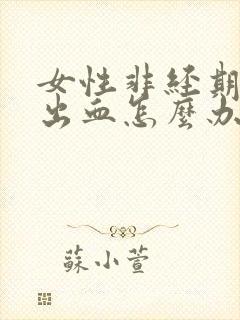 女性非经期
出血怎麼办
蘇小萱